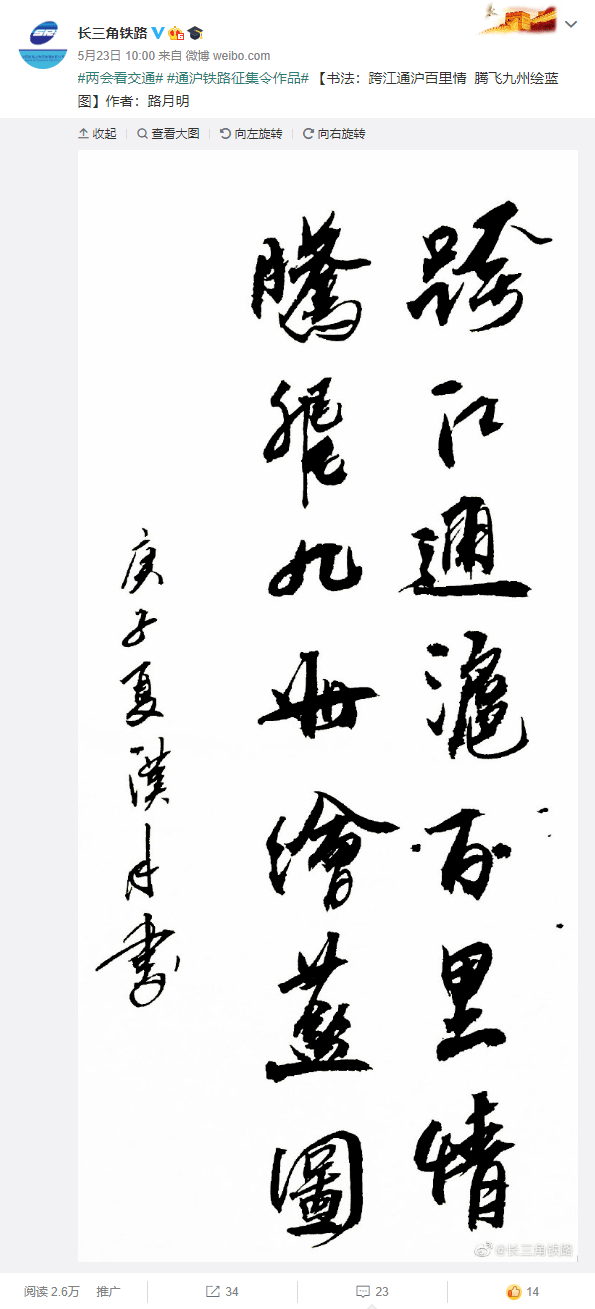 长三角铁路
5月23日 10:00 来自 微博 weibo.com
#两会看交通# #通沪铁路征集令作品# 【书法：跨江通沪百里情 腾飞九州绘蓝
图】作者：路月明
收起 查看大图 向左旋转 向右旋转
跨江通滬百里情
騰飛九州繪藍圖
庚子夏漢月書
@长三角铁路
阅读 2.6万 推广 34 23 14